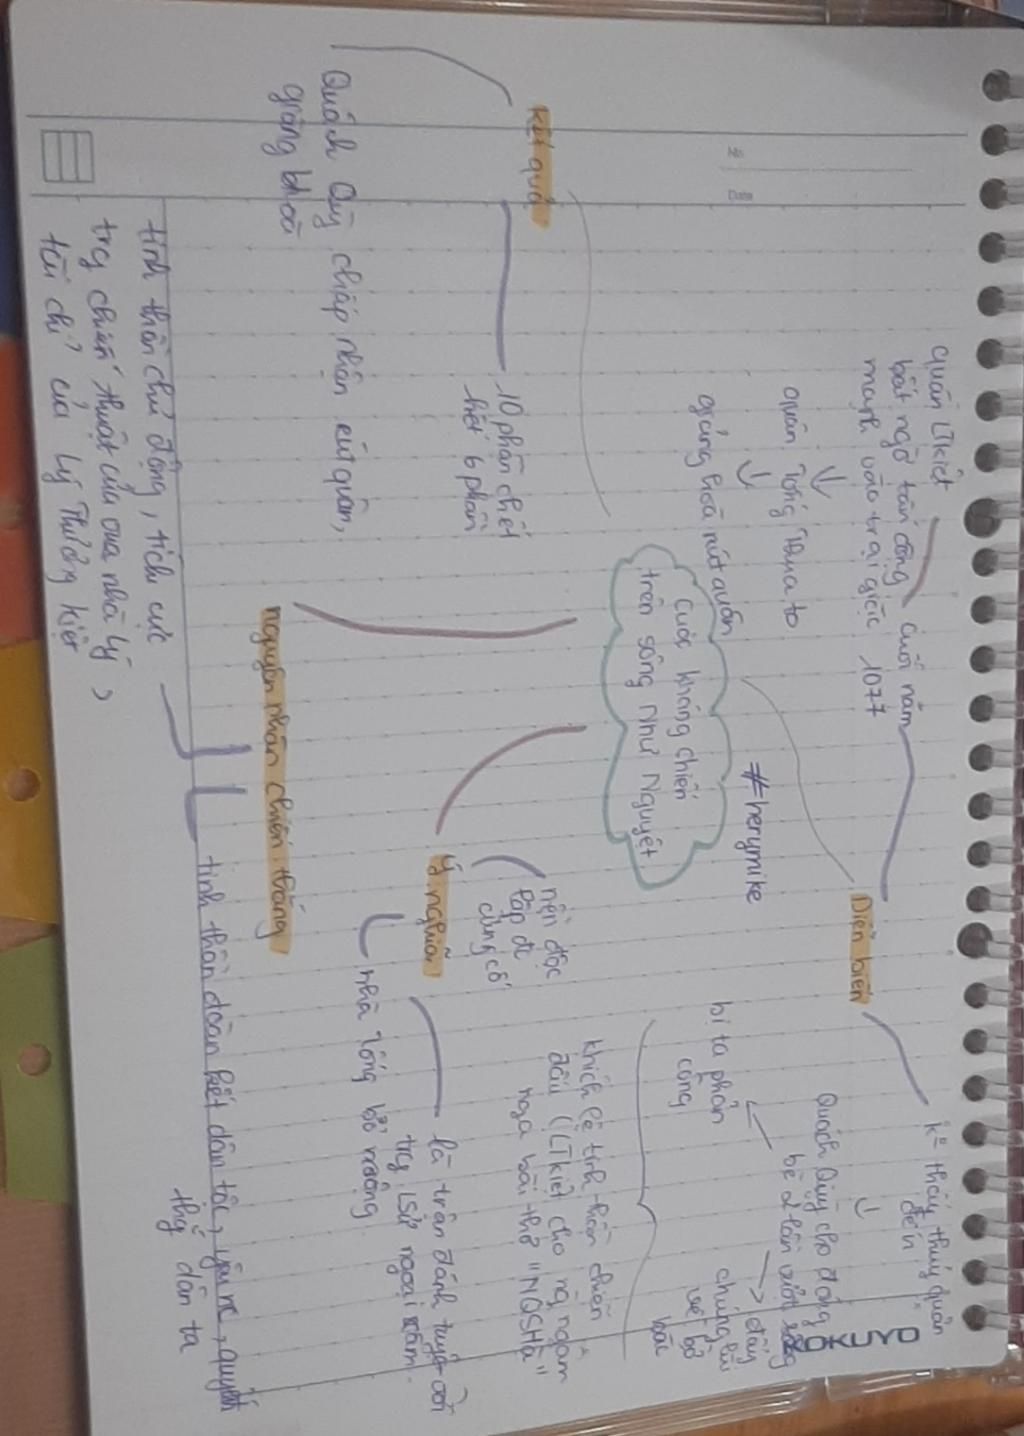 Cuộc kháng chiến
trên sông Như Nguyệt
#herymike
Diễn biến
k° thấy thuỷ quân
đến
↓
Quách Quỳ cho đóng
bè 2 lần vượt sông
bị ta phản
công
đẩy
chúng lùi
về bờ
bắc
khích lệ tinh thần chiến
đấu (LTkiệt cho ng ngâm
nga bài thơ "NQSHà"
cuối năm
1077
quân LTkiệt
bất ngờ tấn công
mạnh vào trại giặc
↓
quân Tống thua to
↓
giảng hoà rút quân
kết quả
10 phần chết
hết 6 phần
Quách Quỳ chấp nhận rút quân,
giảng hoà
Ý nghĩa
nền độc
lập đc
củng cố
là trận đánh tuyệt vời
trg LSử ngoại xâm
nhà Tống bỏ mộng
nguyên nhân chiến thắng
tinh thần chủ động, tích cực
trg chiến thuật của vua nhà Lý,
tài chỉ của Lý Thường Kiệt
tinh thần đoàn kết dân tộc, yêu nc, quyết
thg dân ta
KOKUYO